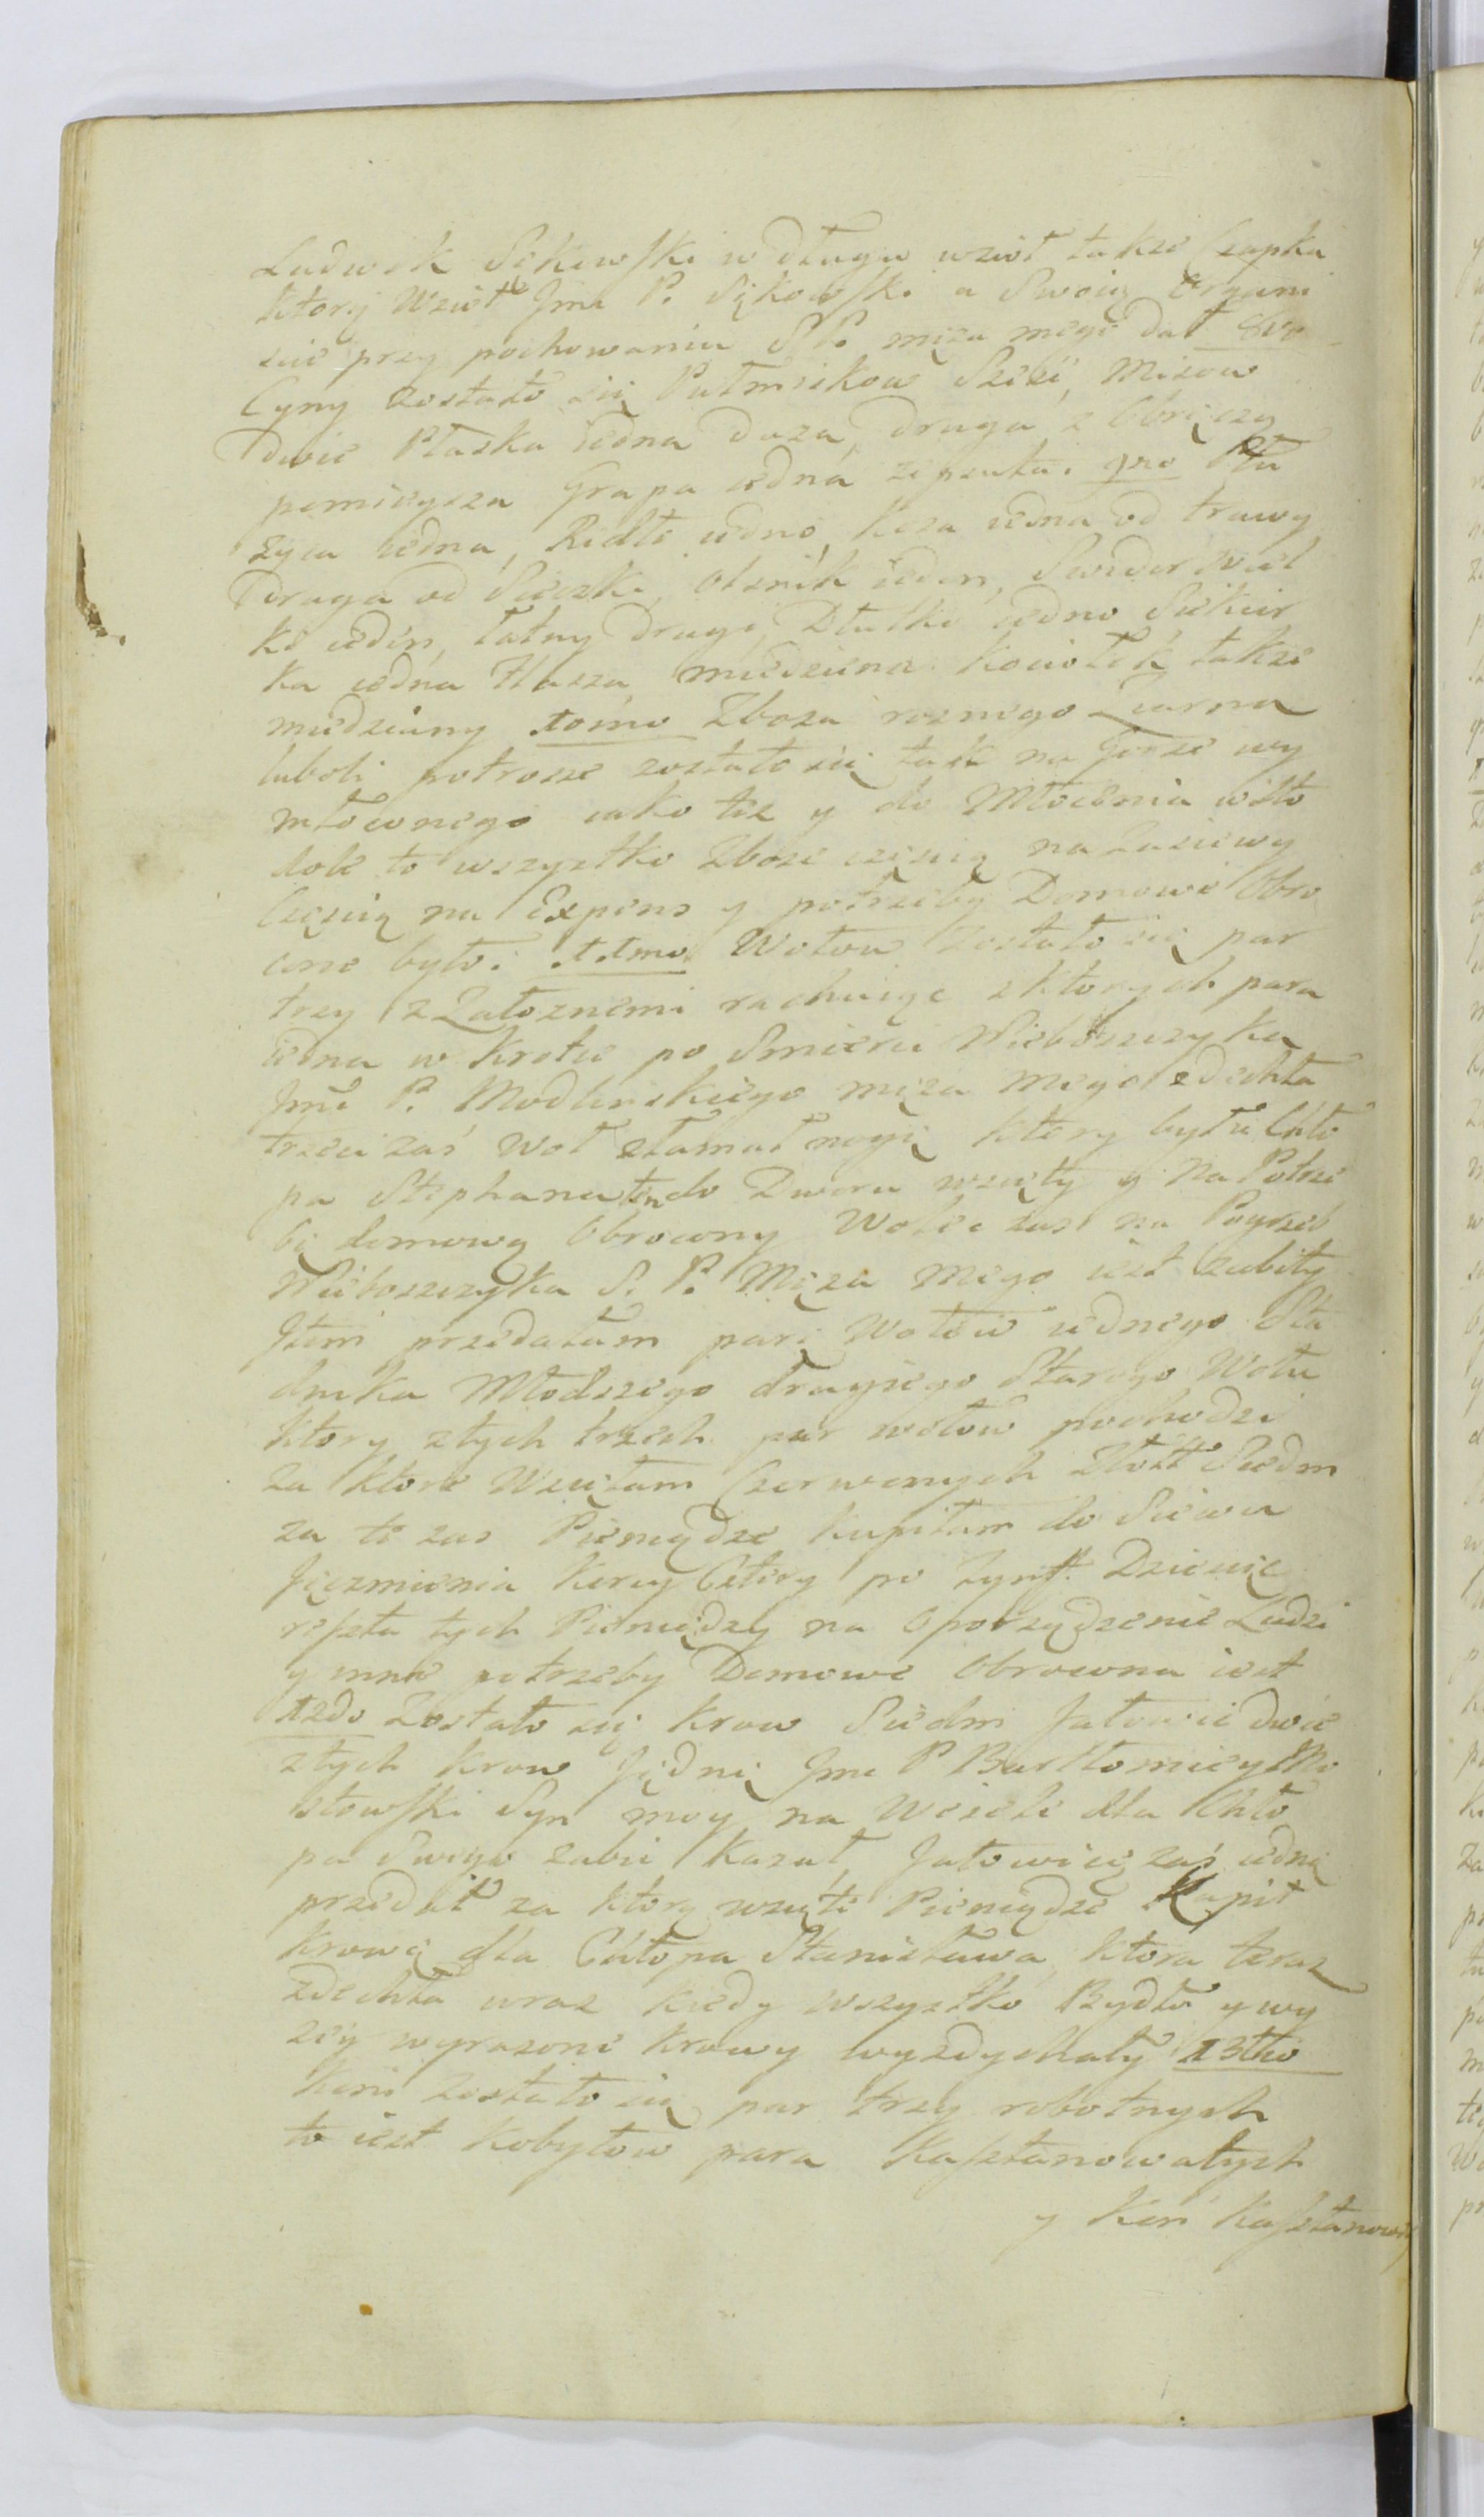 Ludwik Sękowski w długu wzioł także Czapka
ktorą Wzioł Jmć P. Sękowski a Swoią
scie przy pochowaniu S. P. męża mego dał 8vo
Cyny zostało się Pułmiskow Sześć, Mizow
dwie Płaska iedna duza, druga z Obręczą
pomieysza Grapa iedna zepsuta. 9no Płu
życa iedna, Radło iedno, Kosa iedna od trawy
Druga od Sieczki, Ośnik ieden, Swider wiel
ki ieden, łatny drugi, Dłutko iedno Siekier
ka iedna Flasza miedziena Kociołek także
miedziany 10mo Zboza roznego Ziarna
luboli potrosze zostało się tak na Gorze wy
młoconego iako tez y do Młocenia w Sto
dole to wszystko Zboze częsią na Zasiewy
Częsią na Expens y potrzeby Domowe Obro
cone było. 11mo Wołow zostało się par
trzy z Założnemi rachuiąc z ktorych para
iedna w Krotce po Smierci Nieboszczyka
Jmć P. Modlinskiego męża mego zdechła
trzeci zaś Woł złamał nogę ktory był u Chło
pa Stephana ten do Dworu wzięty y Na Potrze
bę domową Obrocony Wołec zas na Pogrzeb
Nieboszczyka S. P. Męza Mego iest zabity
Item przedałam parę Wołow iednego Sta
dnika Młodszego drugiego Starego Wołu
ktory z tych trzech par wołow pochodzi
za ktore Wzięłam Czerwonych Złott Siedm
za te zas Pieniądze kupiłam do Siewu
Jęczmienia Korcy Cztery po Tynff. Dziewię
reszta tych Pieniędzy na Oporządzenie Ludzi
y inne potrzeby Domowe Obrocona iest
12do Zostało się krow Siedm Jałowic dwie
z tych krow Jędnę Jmć P Bartłomiey Ko
słowski Syn moy na Wesele dla Chło
pa Swego zabić Kazał, Jałowicę zaś iednę
przedał za ktorą wzięte Pieniądze Kupił
krowę dla Chłopa Stanisława, ktora teraz
zdechła wraz kiedy wszystko Bydło y wy
zey wyrazone Krowy wyzdychały 13tio
Koni zostało się par trzy robotnych
to iest Kobyłow para Kasztanowatych
y Koń Kasztanow